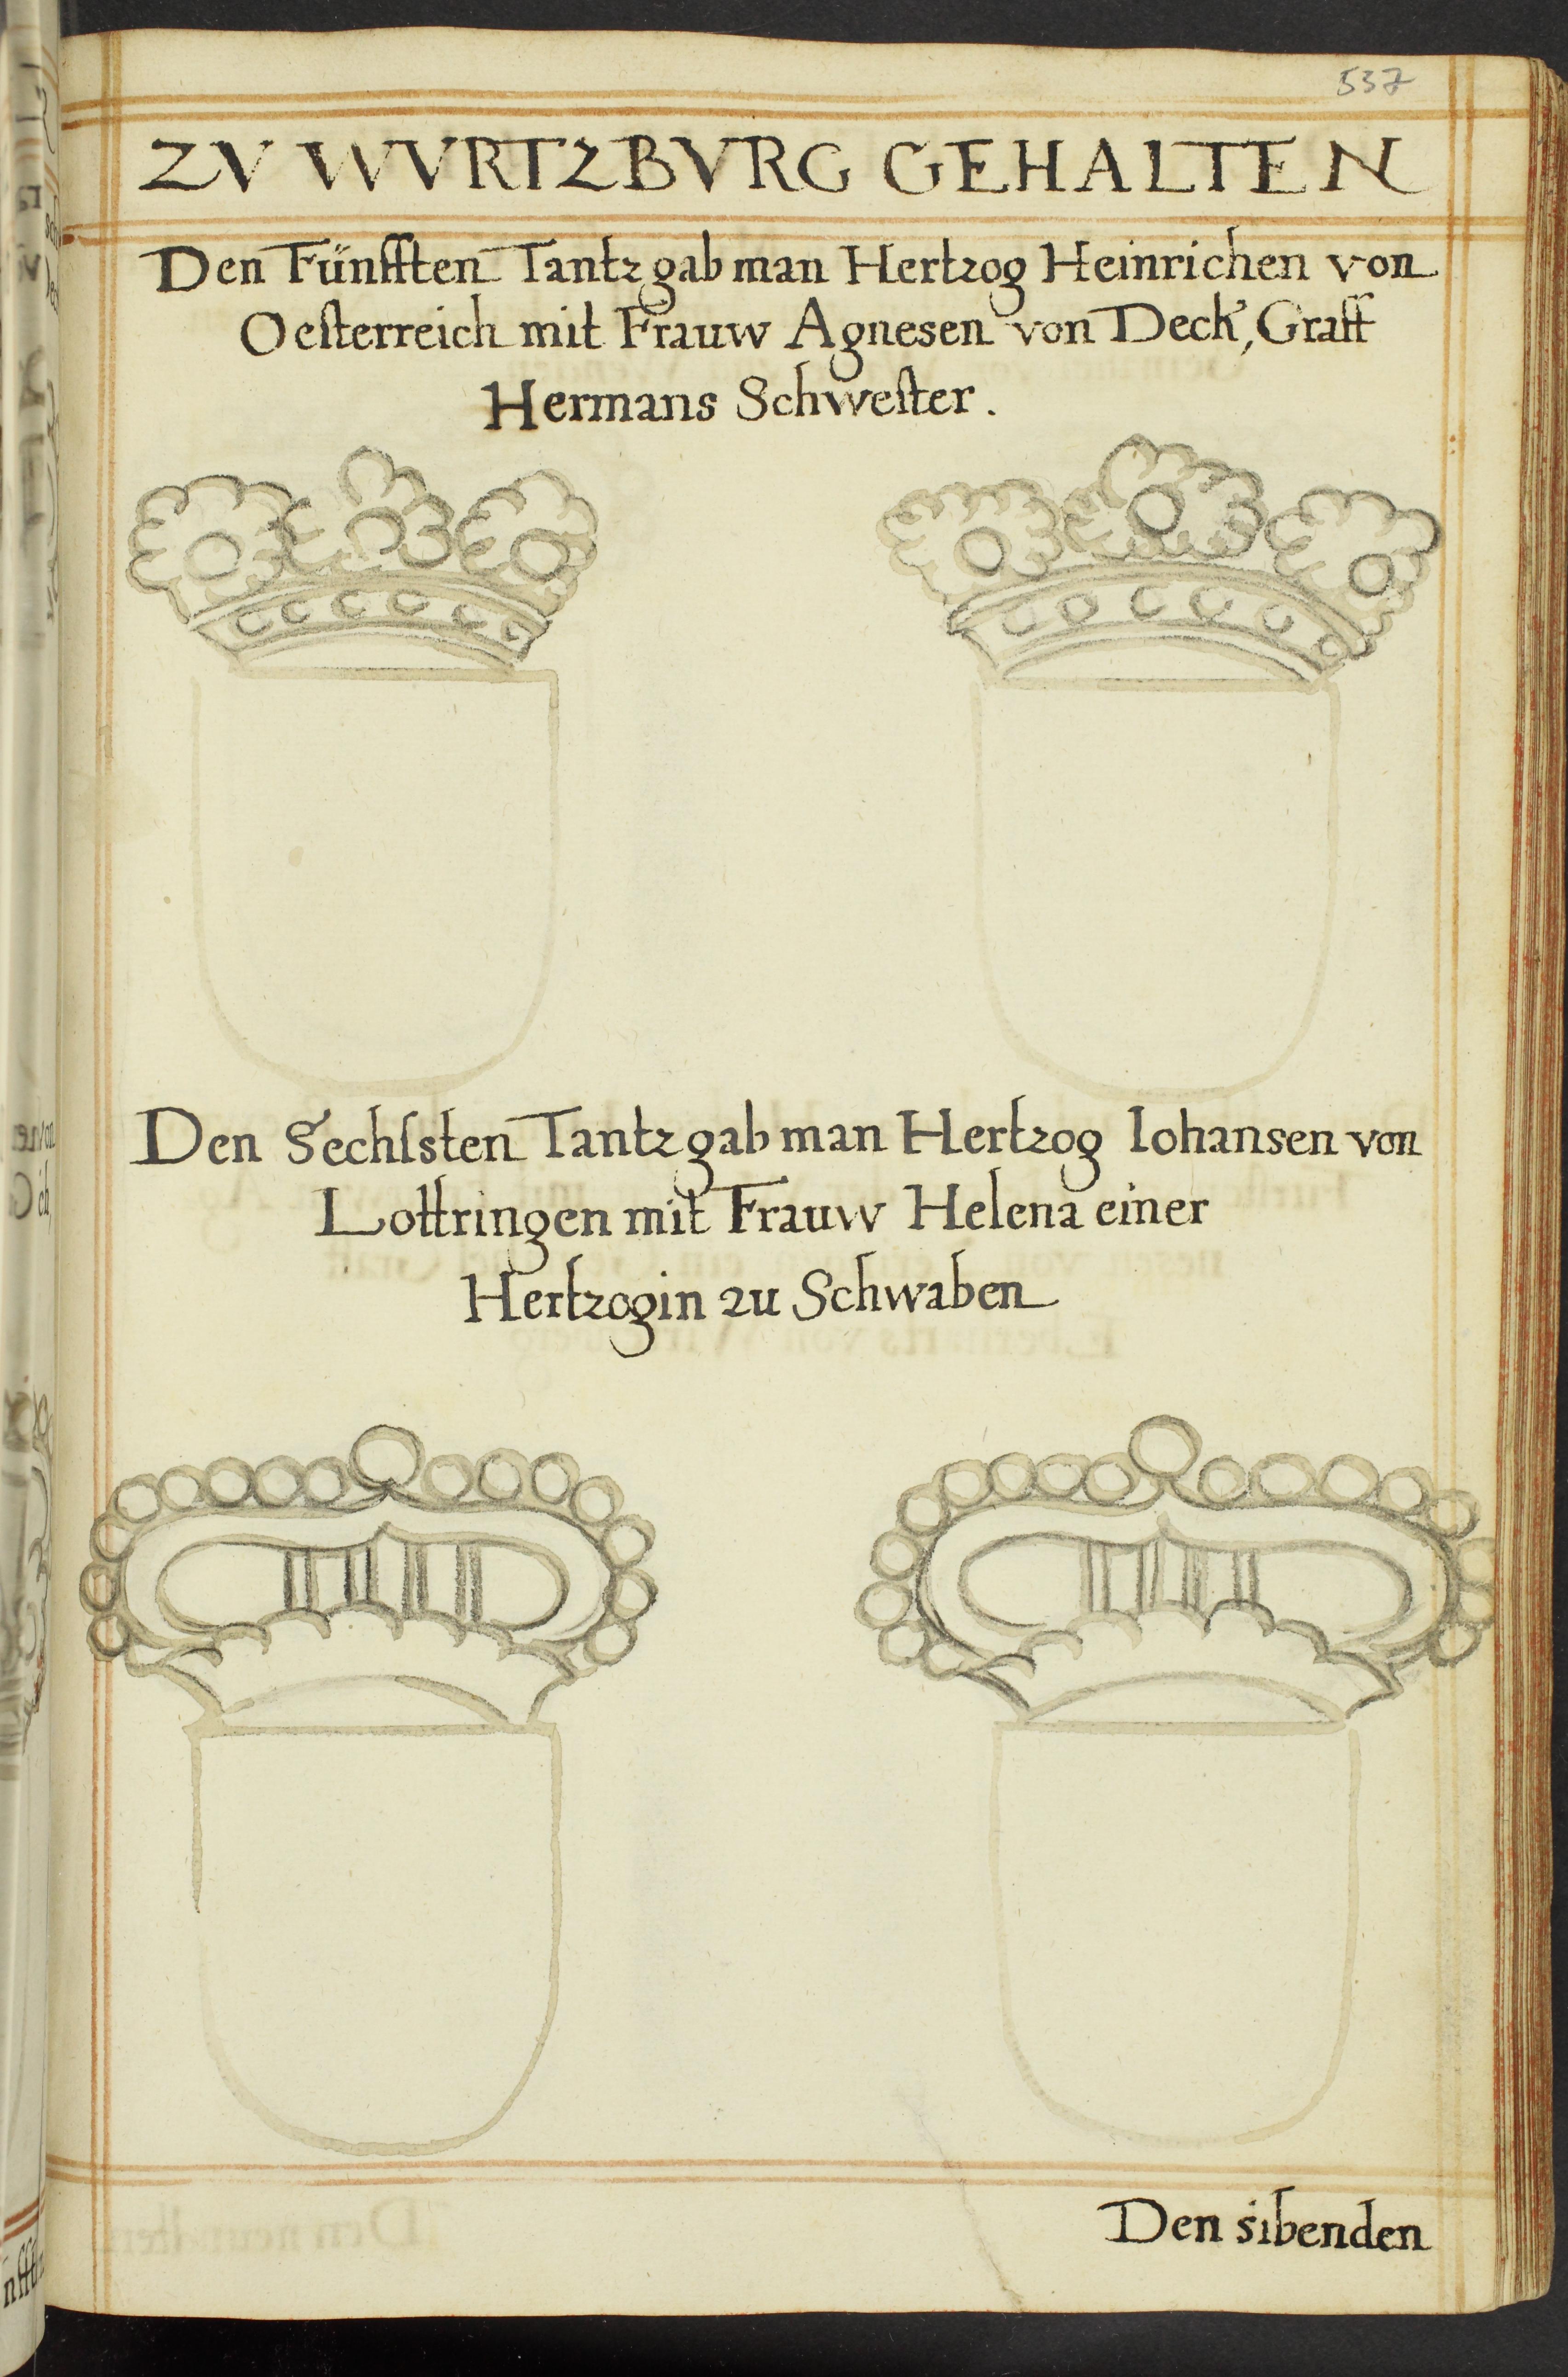 537
ZV WVRTZBVRG GEHALTEN
Den Fünfften Tantz gab man Hertzog Heinrichen von
Oeſterreich mit Frauw Agnesen von Deck, Graff
Hermans Schweſter.
Den Sechſsten Tantz gab man Hertzog Iohansen von
Lottringen mit Frauw Helena einer
Hertzogin zu Schwaben
Den sibenden